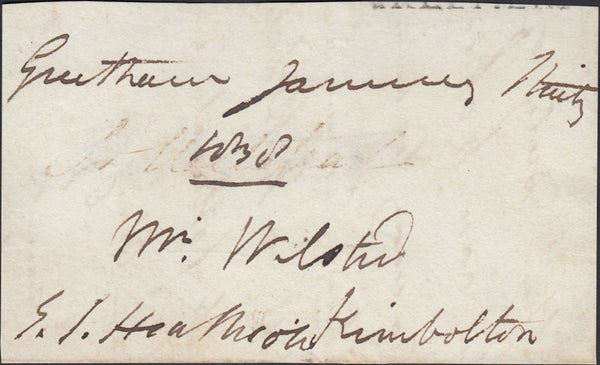 Greetham January Ninth
1838
Mr. Wilsted
G. J. Heathcote Kimbolton